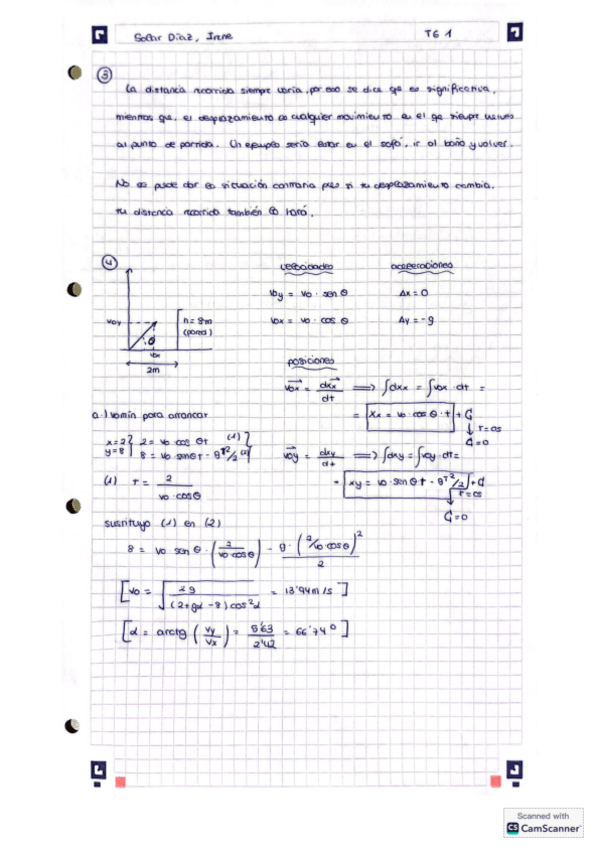 Solar Díaz, Irene
TG 1
③
La distancia recorrida siempre varía, por eso se dice que es significativa,
mientras que, el desplazamiento de cualquier movimiento en el que siempre
al punto de partida. Un ejemplo sería estar en el sofá, ir al baño y volver.
No se puede dar la situación contraria pues si tu desplazamiento cambia,
tu distancia recorrida también lo hará.
④
velocidades
aceleraciones
voy = vo · sen θ
Ax = 0
vox = vo · cos θ
Ay = -g
voy
θ
vox
h = 8m
(pared)
2m
posiciones
vox = dxx/dt ⟹ ∫dxx = ∫vox · dt =
= xx = vo · cos θ · t + C
C = 0
a.) vomin para arrancar
x = 2 } 2 = vo · cos θt (1)
y = 8 } 8 = vo · senθt - gt²/2 (2)
voy = dxy/dt ⟹ ∫dxy = ∫voy · dt =
= xy = vo · sen θt - gt²/2 + C
C = 0
(1) t = 2/(vo · cosθ)
sustituyo (1) en (2)
8 = vo · sen θ · (2/(vo·cosθ)) - g · (2/vo·cosθ)²/2
[vo = √(2g/((2+gα -8)cos²α)) = 13'94 m/s]
[α = arctg (vy/vx) = 5'63/2'42 = 66'74°]
Scanned with
CS CamScanner